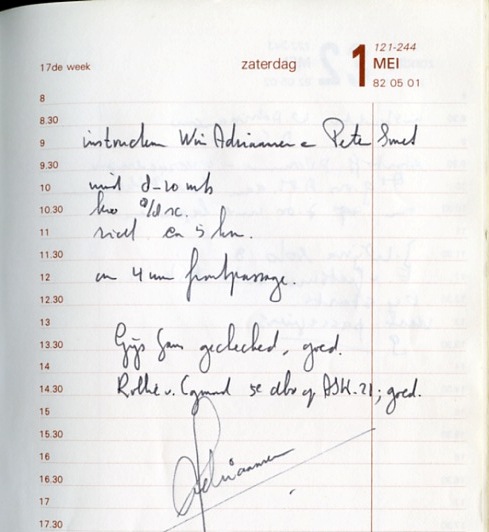 121-244
17de week zaterdag 1 MEI
82 05 01
8
8.30
9 instructeur Wim Adriaansen e Peter Smet
9.30
10 wind 0-10 mh
10.30
11 zicht ca 5 km.
11.30
12 om 4 uur frontpassage.
12.30
13
13.30 Gijs gecheched, goed.
14
14.30 Rollie v. Egmond 5e dbo op ASK-21; goed.
15
15.30
16
16.30 Adriaansen
17
17.30